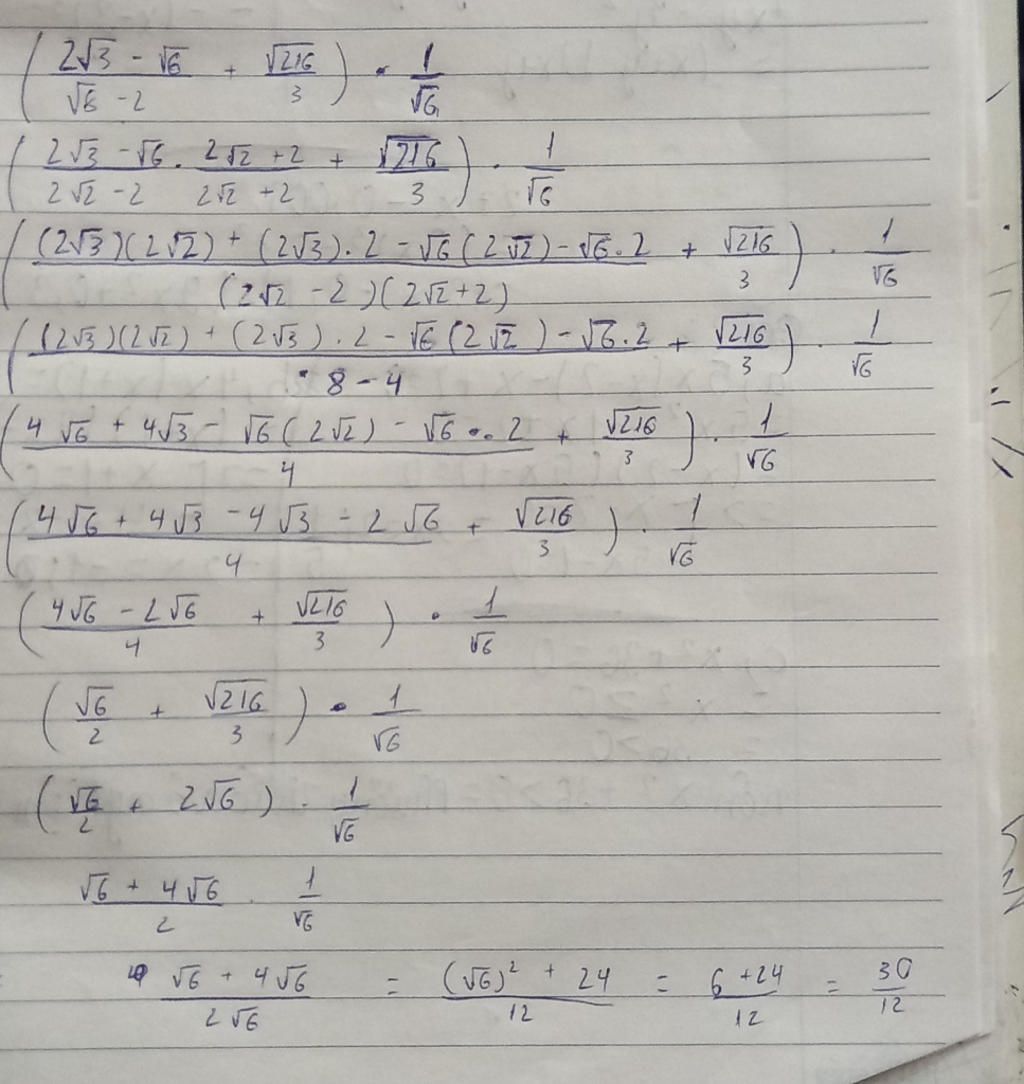 ( (2√3 - √6)/(√8 - 2) + √216/3 ) · 1/√6
( (2√3 - √6)/(2√2 - 2) · (2√2 + 2)/(2√2 + 2) + √216/3 ) · 1/√6
( ((2√3)(2√2) + (2√3).2 - √6(2√2) - √6.2)/((2√2 - 2)(2√2 + 2)) + √216/3 ) · 1/√6
( ((2√3)(2√2) + (2√3).2 - √6(2√2) - √6.2)/(8 - 4) + √216/3 ) · 1/√6
( (4√6 + 4√3 - √6(2√2) - √6 . 2)/4 + √216/3 ) · 1/√6
( (4√6 + 4√3 - 4√3 - 2√6)/4 + √216/3 ) · 1/√6
( (4√6 - 2√6)/4 + √216/3 ) · 1/√6
( √6/2 + √216/3 ) · 1/√6
( √6/2 + 2√6 ) · 1/√6
(√6 + 4√6)/2 · 1/√6
(√6 + 4√6)/(2√6) = ((√6)² + 24)/12 = (6 + 24)/12 = 30/12